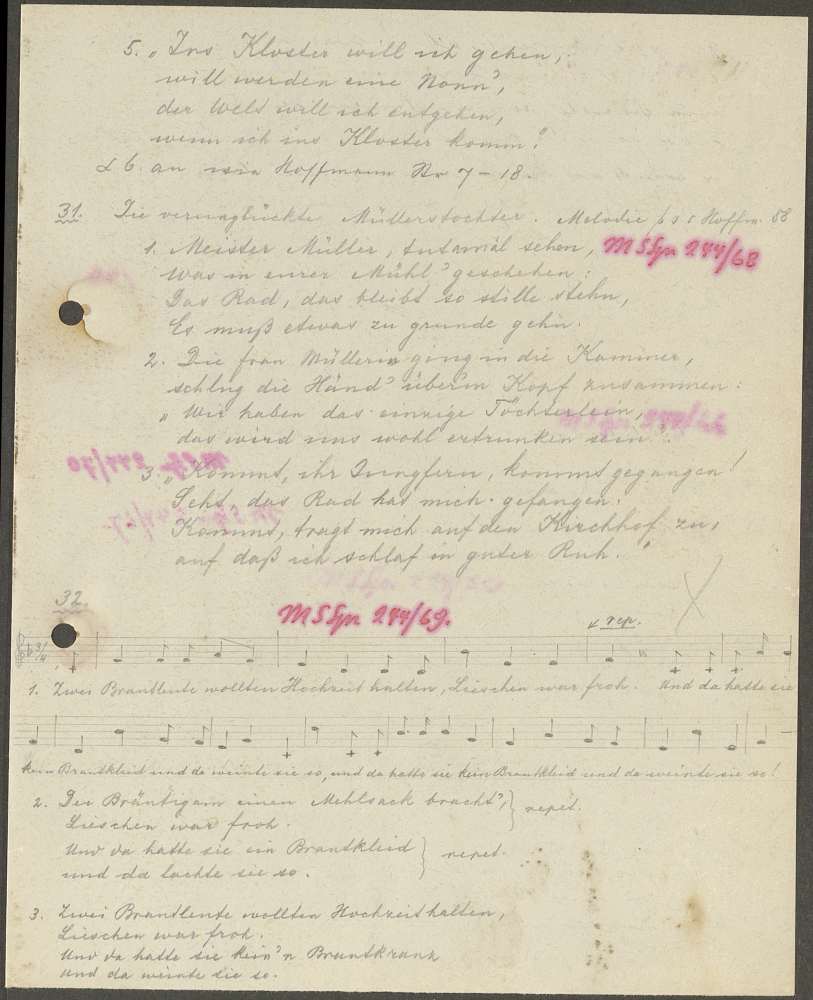 5. „Ins Kloster will ich gehen,
will werden eine Nonn',
der Welt will ich entgehen,
wenn ich ins Kloster komm."
& 6. an wie Hoffmann Nr 7 - 18.
31. Die verunglückte Müllerstochter. Melodie Hoffm. 58
1. Meister Müller, tut mal sehen,
MSSgn 244/68
Was in eurer Mühl' geschehen:
Das Rad, das bleibt so stille stehn,
Es muß etwas zu grunde gehn.
2. Die frau Müllerin ging in die Kammer,
schlug die Händ' über'm Kopf zusammen:
„Wir haben das einzige Töchterlein,
das wird uns wohl ertrunken sein."
3. „Kommt, ihr Jungfern, kommt gegangen!
Seht, das Rad hat mich gefangen.
Kommt, tragt mich auf den Kirchhof zu,
auf daß ich schlaf in guter Ruh."
32.
MSSgn 244/69.
rep.
1. Zwei Brautleute wollten Hochzeit halten, Lieschen war froh. Und da hatte sie
kein Brautkleid und da weinte sie so, und da hatte sie kein Brautkleid und da weinte sie so!
2. Der Bräutigam einen Mehlsack bracht', } repet.
Lieschen war froh.
Und da hatte sie ein Brautkleid } repet.
und da lachte sie so.
3. Zwei Brautleute wollten Hochzeit halten,
Lieschen war froh.
Und da hatte sie kein'n Brautkranz
und da weinte sie so.